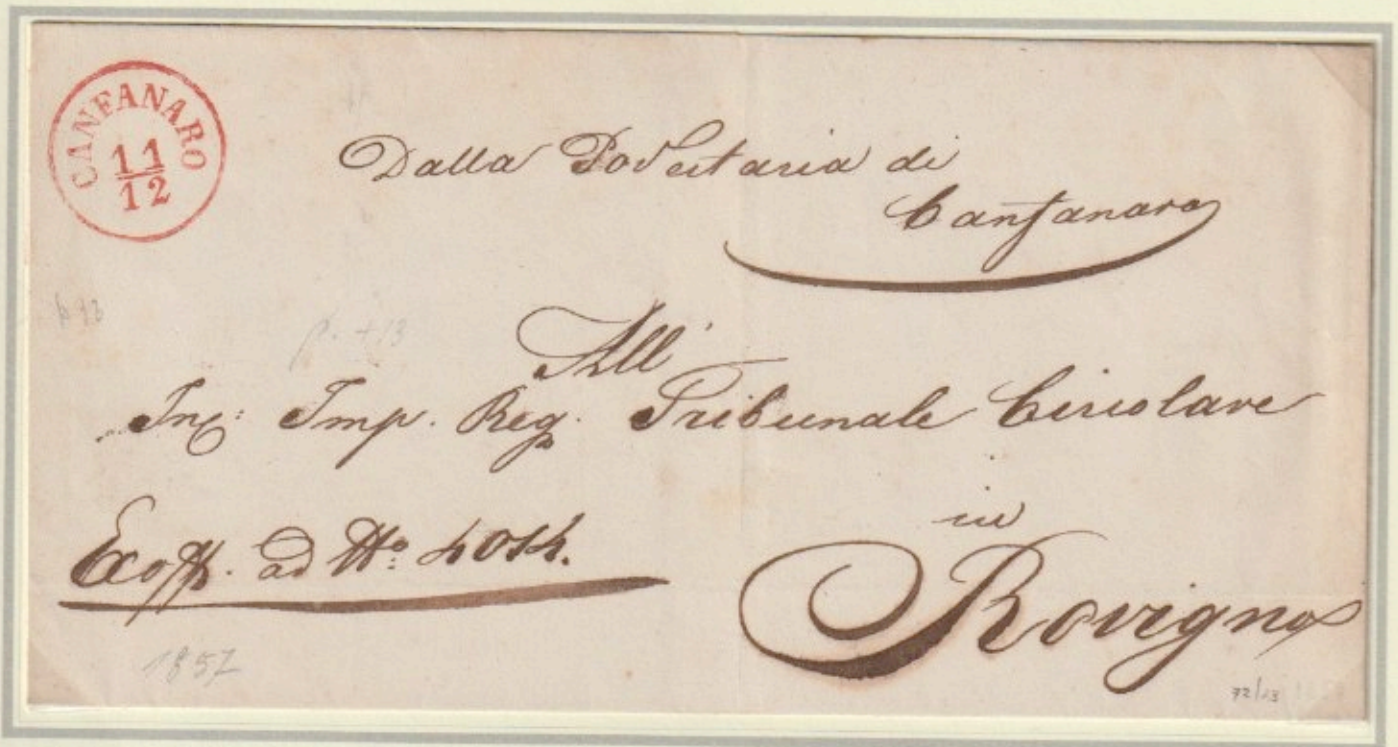 CANFANARO
11
12
Dalla Podestaria di
Canfanaro
All'
Inc: Imp. Reg. Tribunale Circolare
in
Rovigno
Exoff. ad No: 4014.
1857
p. +13
72/13